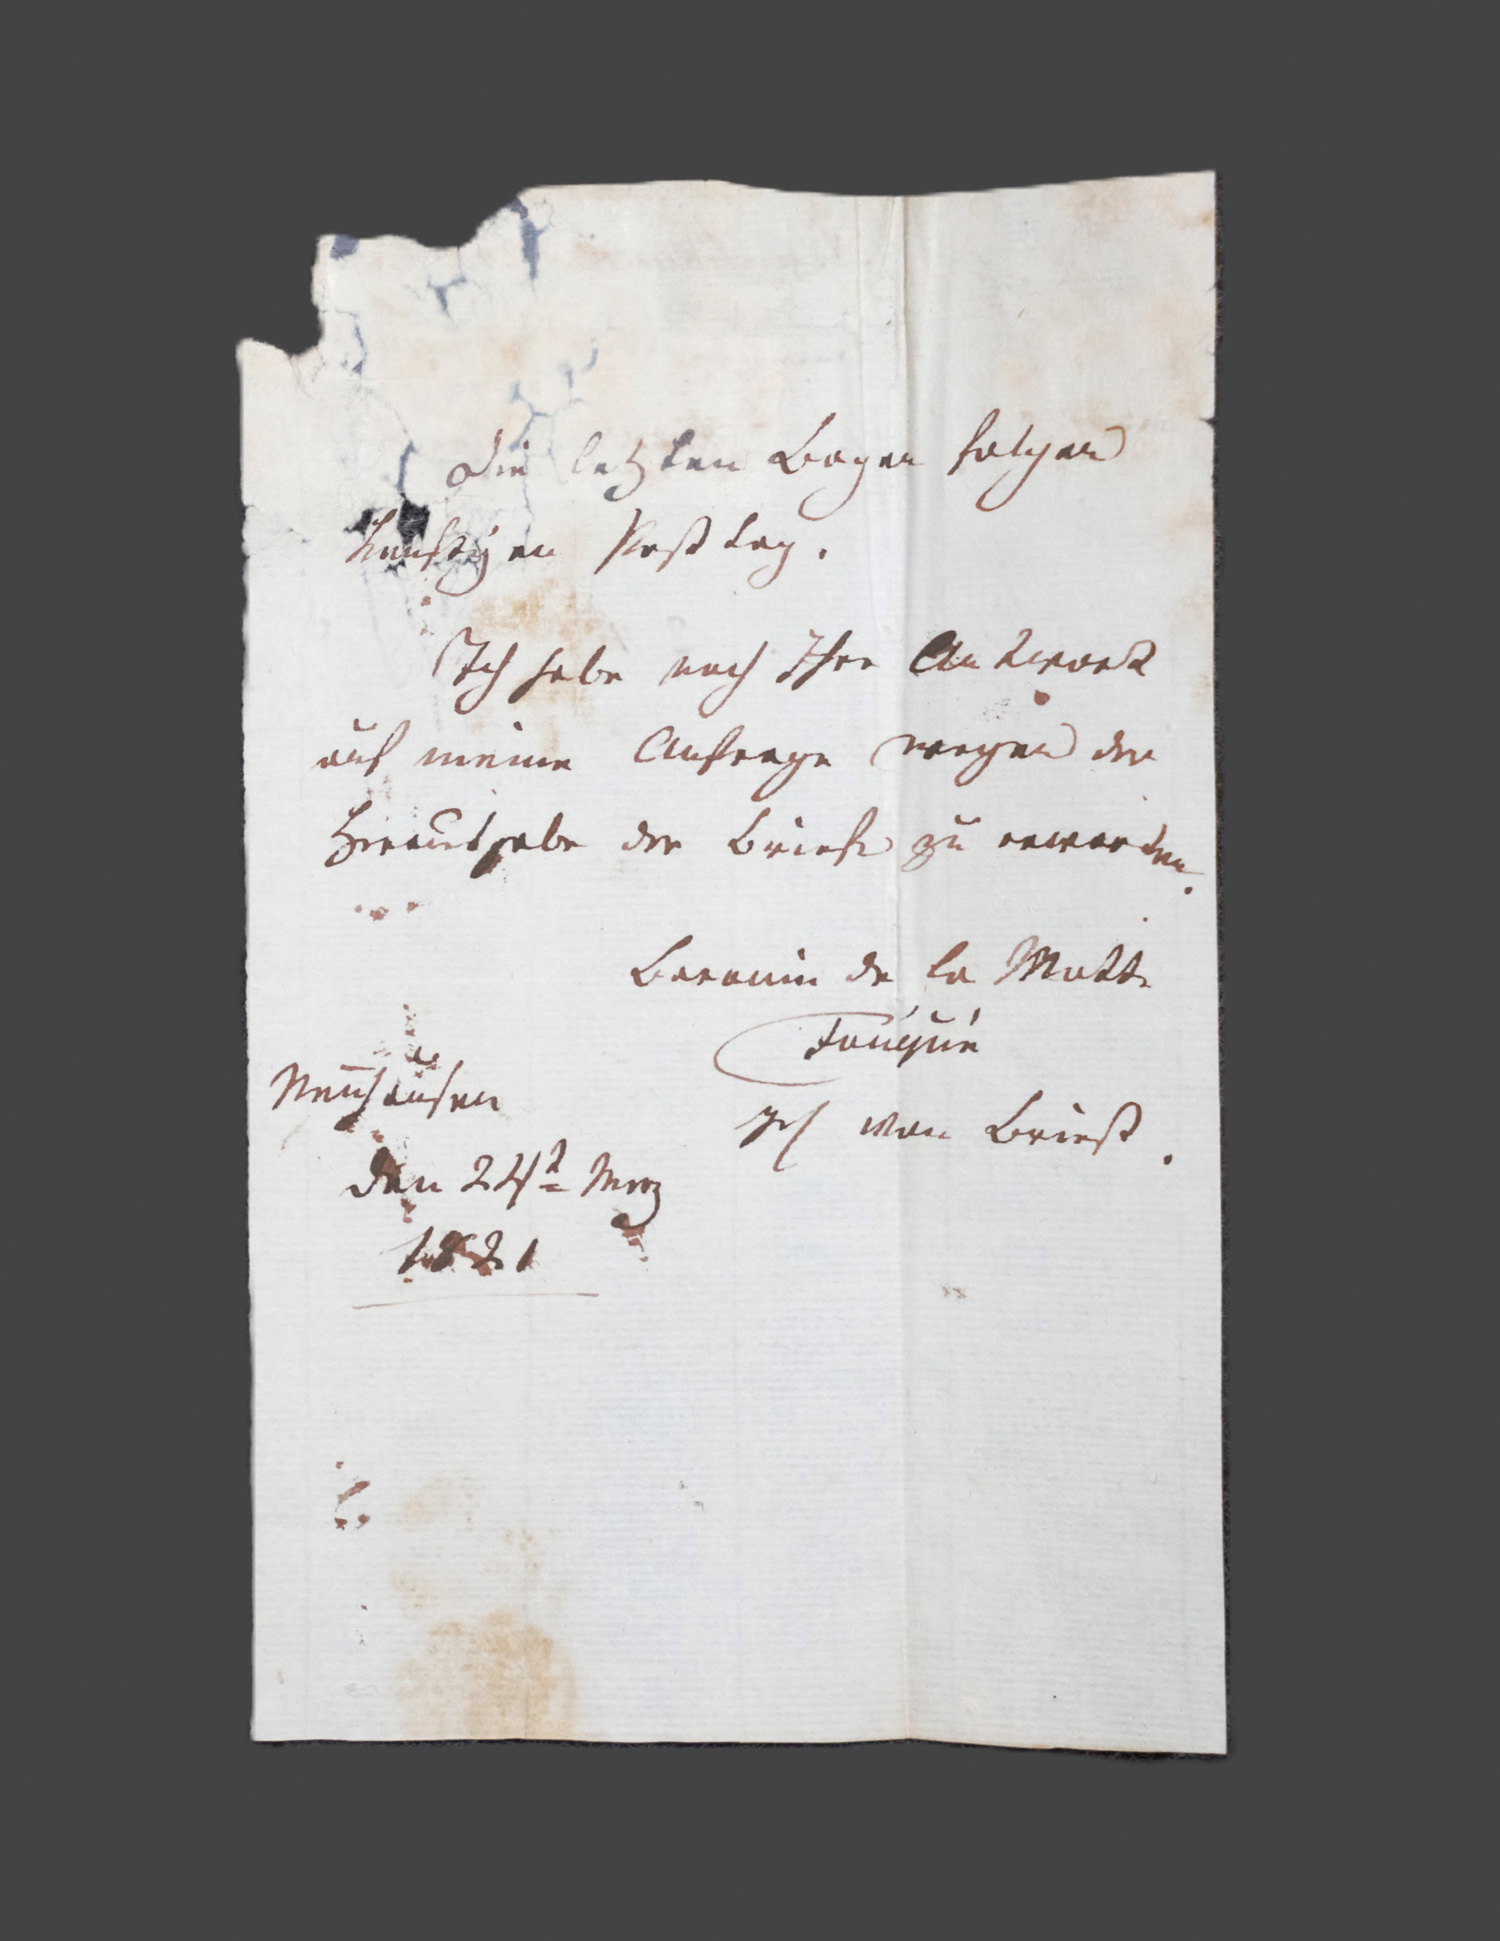 Die letzten Bogen folgen
künftigen Posttag.
Ich habe noch Ihre Antwort
auf meine Anfrage wegen der
Herausgabe der Briefe zu erwarten.
Baronin de la Motte
Fouqué
geb von Briest.
Neuhausen
den 24t Merz
1821